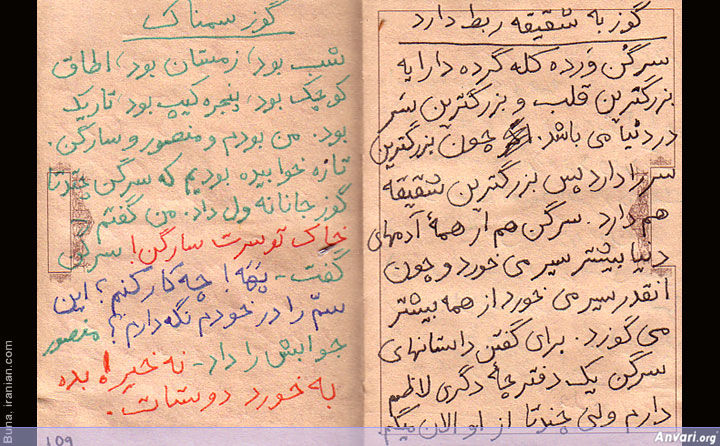 گوز به شقیقه ربط دارد
سرگُن وَرده کله گرده دارایه
بزرگترین قلب و بزرگترین سَر
در دنیا می باشد. چون بزرگترین
سر را دارد پس بزرگترین شقیقه
هم دارد. سرگن هم از همهٔ آدمهای
دنیا بیشتر سیر می خورد و چون
انقدر سیر می خورد از همه بیشتر
می گوزد. برای گفتن داستانهای
سرگن یک دفترچهٔ دگری لاظم
دارم ولی چندتا از او الان میگم
گوز سمناک
شب بود، زمستان بود، اطاق
کوچک بود، پنجره کیپ بود، تاریک
بود. من بودم و منصور و سارگن.
تازه خوابیده بودیم که سرگن چندتا
گوز جانانه ول داد. من گفتم
خاک تو سرت سارگن! سرگن
گفت- پَهَه! چه کار کنم؟ این
سمّ را در خودم نگه دارم؟ منصور
جوابش را داد- نه خیر! بده
به خورد دوستات.
109
Buna. iranian.com
Anvari.org